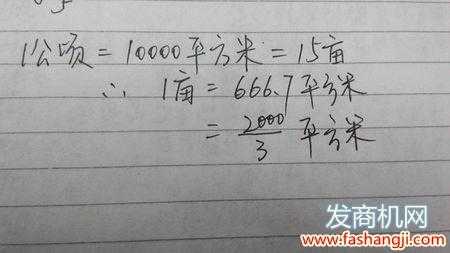 1公顷 = 10000平方米 = 15亩
∴ 1亩 = 666.7平方米
= 2000/3 平方米
发商机网
www.fashangji.com